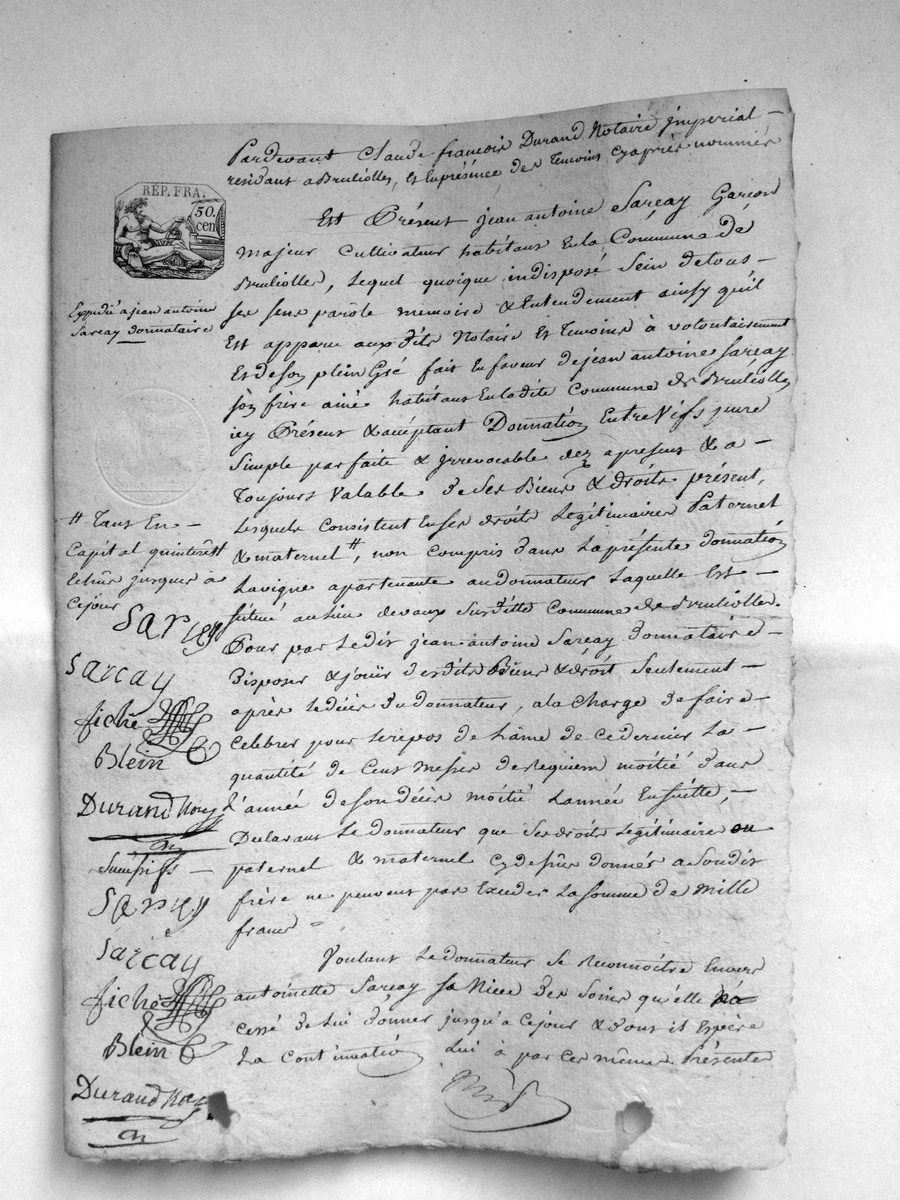 Pardevant Claude francois Durand Notaire jmperial
residant a Brulliolles, Et En présence des Temoins cyaprès nommés
RÉP. FRA.
50.
cen
Est Présent jean antoine Sarcay Garcon
majeur Cultivateur habitant En la Commune de
Brulliolles, Lequel quoique indisposé Sein de tous
ses sens parole memoire & Entendement ainsy qu'il
Expédié a jean antoine
Sarcay Donnataire
Est apparu auxdits Notaire Et Temoins à volontairement
Et de Son plein Gré fait En faveur de jean antoine Sarcay
son frère ainé habitant En ladite Commune de Brulliolles
icy Présent & acéptant Donnation Entre Vifs pure
Simple parfaite & jrrevocable dez apresent & a
Toujours Valable de Ses Biens & droits présent,
Lesquels Consistent En ses droits Legitimaires Paternel
& maternel #, non Compris dans La présente donnation
# Tant En
Capital qu'interêt
Echus jusques à
Cejour
La vigne apartenante au donnateur Laquelle Est
situé au Lieu de vaux Susditte Commune de Brulliolles.
Pour par Ledit jean antoine Sarcay donnataire
Disposer & jouir desdits Biens & droit Seulement
après Le décès du donnateur, a la Charge de faire
Celebrer pour Le repos de L'âme de ce dernier La
quantité de Cent messes de requiem moitié dans
L'année de son décès moitié Lannée Ensuitte,
Declarant Le donnateur que Ses droits Legitimaires
paternel & maternel cy dessus donnés a Son dit
frère ne peuvent pas Exceder La Somme de Mille
francs =
Sarcay
Sarcay
fiche
Blein
Durand Not
Sarcay
Sarcay
fiche
Blein
Durand Not
Voulant Le donnateur Se reconnoitre Envers
antoinette Sarcay sa Niece des Soins qu'elle n'a
cessé de Lui donner jusqu'a Cejour & dont il Espère
La Continuation Lui à par Ces mêmes Présentes